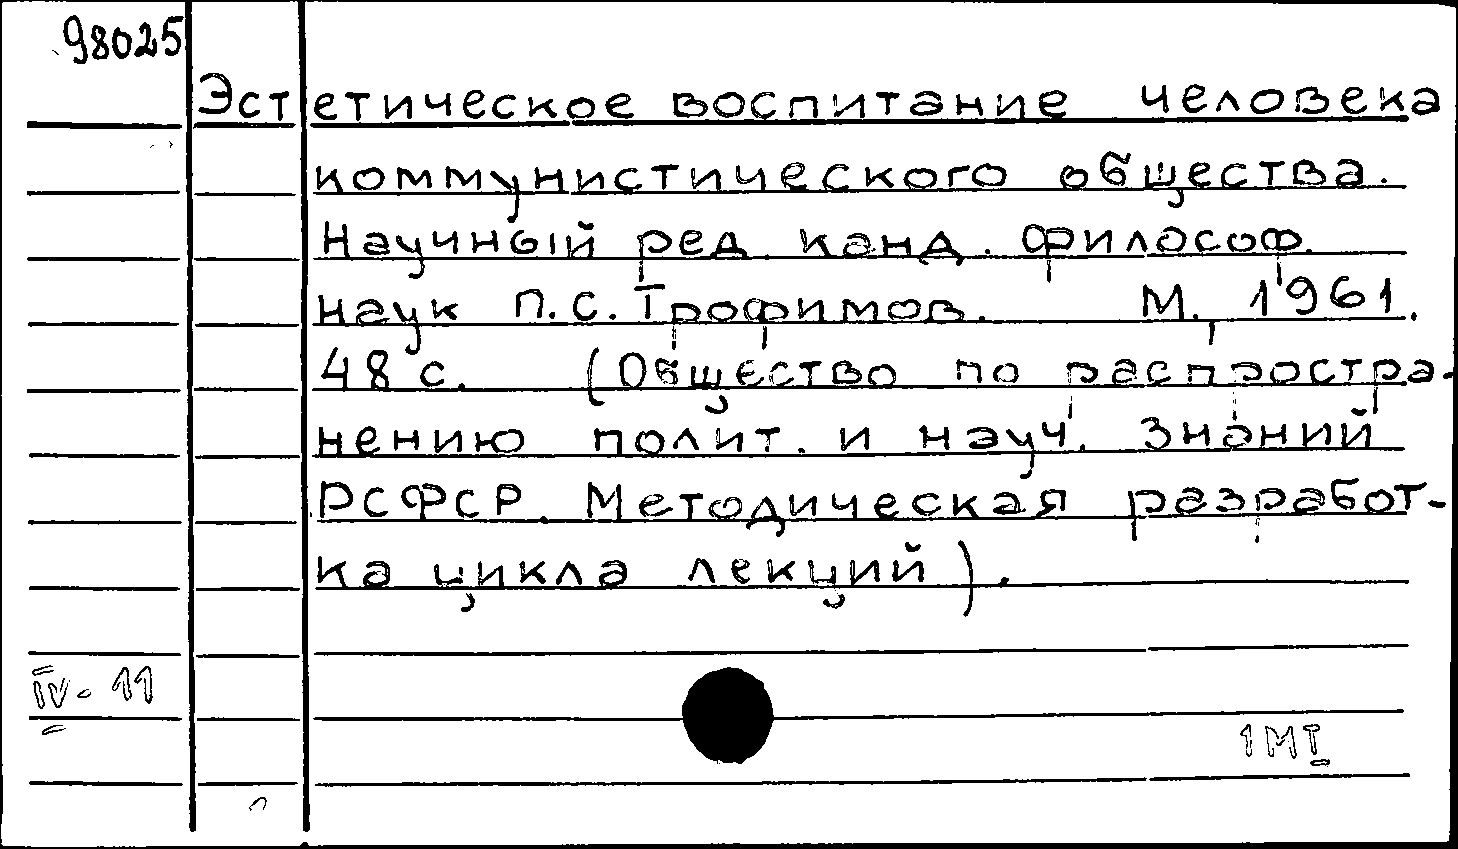 98025
Эстетическое воспитание человека
коммунистического общества.
Научный ред. канд. философ.
наук П.С. Трофимов. М., 1961.
48 с. (Общество по распростра-
нению полит. и науч. знаний
РСФСР. Методическая разработ-
ка цикла лекций).
IV-11
1МI